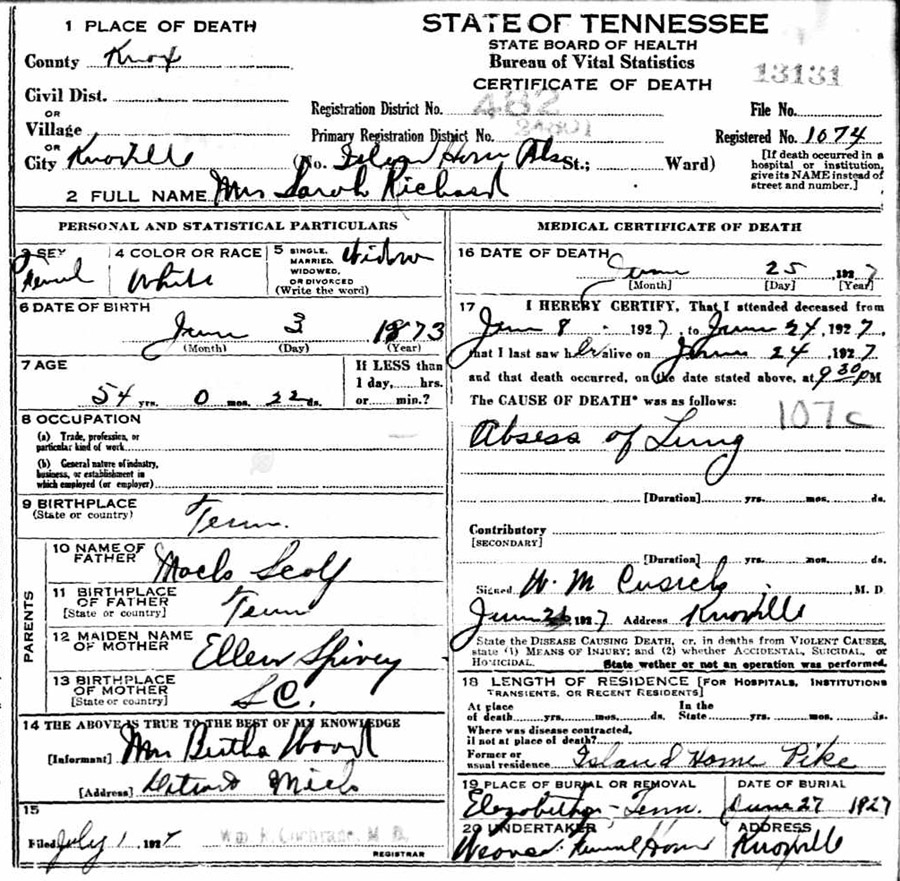 1 PLACE OF DEATH
County Knox
Civil Dist.
OR
Village
OR
City Knoxville (No. Island Home St.; Ward)
2 FULL NAME Mrs Sarah Richard
STATE OF TENNESSEE
STATE BOARD OF HEALTH
Bureau of Vital Statistics
CERTIFICATE OF DEATH
13131
Registration District No. 482
File No.
Primary Registration District No. 24801
Registered No. 1074
[If death occurred in a
hospital or institution,
give its NAME instead of
street and number.]
PERSONAL AND STATISTICAL PARTICULARS
3 SEX
Femal
4 COLOR OR RACE
White
5 SINGLE,
MARRIED,
WIDOWED,
OR DIVORCED
(Write the word)
Widow
6 DATE OF BIRTH
June 3 1873
(Month) (Day) (Year)
7 AGE
54 yrs. 0 mos. 22 ds.
If LESS than
1 day,......hrs.
or......min.?
8 OCCUPATION
(a) Trade, profession, or
particular kind of work
(b) General nature of industry,
business, or establishment in
which employed (or employer)
9 BIRTHPLACE
(State or country)
Tenn.
PARENTS
10 NAME OF
FATHER
Scalf
11 BIRTHPLACE
OF FATHER
[State or country]
Tenn
12 MAIDEN NAME
OF MOTHER
Ellen Spivey
13 BIRTHPLACE
OF MOTHER
[State or country]
S C.
14 THE ABOVE IS TRUE TO THE BEST OF MY KNOWLEDGE
[Informant] Mrs Bertha Wood
[Address] Detroit Mich
15
Filed July 1 1927 Wm. R. Cochrane, M. D.
REGISTRAR
MEDICAL CERTIFICATE OF DEATH
16 DATE OF DEATH
June 25 1927
[Month] [Day] [Year]
17 I HEREBY CERTIFY, That I attended deceased from
8 1927, to June 24, 1927.
that I last saw her alive on June 24 1927
and that death occurred, on the date stated above, at 9 30 PM
The CAUSE OF DEATH* was as follows:
107c
Absess of Lung
[Duration] yrs. mos. ds.
Contributory
[SECONDARY]
[Duration] yrs. mos. ds.
Signed W. M Cusick M. D
June 26 1927 Address Knoxville
State the DISEASE CAUSING DEATH, or, in deaths from VIOLENT CAUSES,
state (1) MEANS OF INJURY; and (2) whether ACCIDENTAL, SUICIDAL, or
HOMICIDAL. State wether or not an operation was performed.
18 LENGTH OF RESIDENCE [FOR HOSPITALS, INSTITUTIONS
TRANSIENTS, OR RECENT RESIDENTS]
At place
of death......yrs......mos......ds.
In the
State......yrs......mos......ds.
Where was disease contracted,
if not at place of death?
Former or
usual residence Island Home Pike
19 PLACE OF BURIAL OR REMOVAL
Tenn.
DATE OF BURIAL
June 27 1927
20 UNDERTAKER
Weaver Funeral Home
ADDRESS
Knoxville